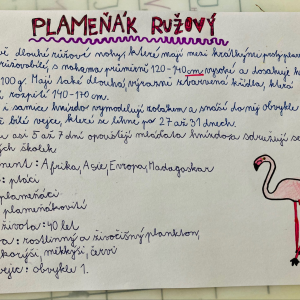 PLAMEŇÁK RŮŽOVÝ
dlouhé růžové nohy, které mají mezi krátkými prsty
, s nohama průměrně 120-140cm vysoké a dosahuje
100g. Mají také dlouhá, výrazně zbarvená křídla, která
rozpětí 140-170 cm.
i samice hnízdo vymodelují zobákem a snáší do něj obvykle
bílé vejce, které se líhne po 27 až 31 dnech.
asi 5 až 7 dní opouštějí mláďata hnízdo a sdružují se
školek
: Afrika, Asie, Evropa, Madagaskar
: ptáci
plameňáci
plameňákovití
života: 40 let
: rostlinný a živočišný plankton,
měkkýši, červi
vejic: obvykle 1.